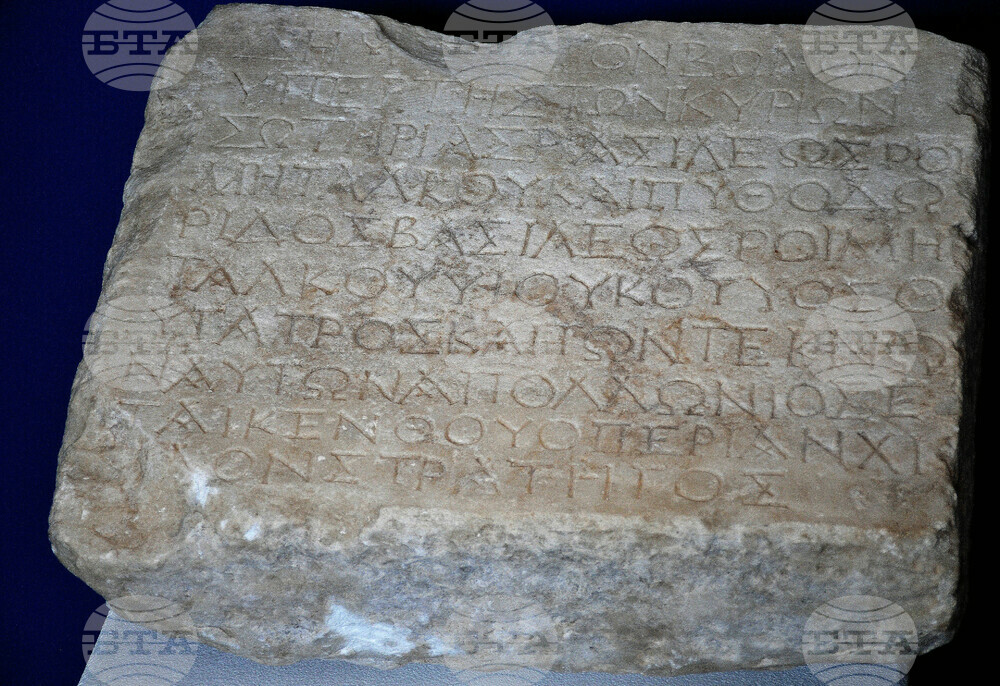 БТА БТА БТА
ΤΟΝΒΩΜΟΝ
ΥΠΕΡΤΗΣΤΩΝΚΥΡΙΩΝ
ΣΩΤΗΡΙΑΣΒΑΣΙΛΕΩΣΡΟΙ
ΜΗΤΑΛΚΟΥΚΑΙΠΥΘΟΔΩ
ΡΙΔΟΣΒΑΣΙΛΕΟΣΡΟΙΜΗ
ΤΑΛΚΟΥΥΙΟΥΚΟΤΥΟΣΘ
БТА БТА БТА
ΠΑΤΡΟΣΚΑΙΤΩΝΤΕΚΝΩ
ΝΑΥΤΩΝΑΠΟΛΛΩΝΙΟΣΕ
ΤΑΙΚΕΝΘΟΥΟΠΕΡΙΑΝΧΙ
ΟΝΣΤΡΑΤΗΓΟΣ
БТА БТА БТА